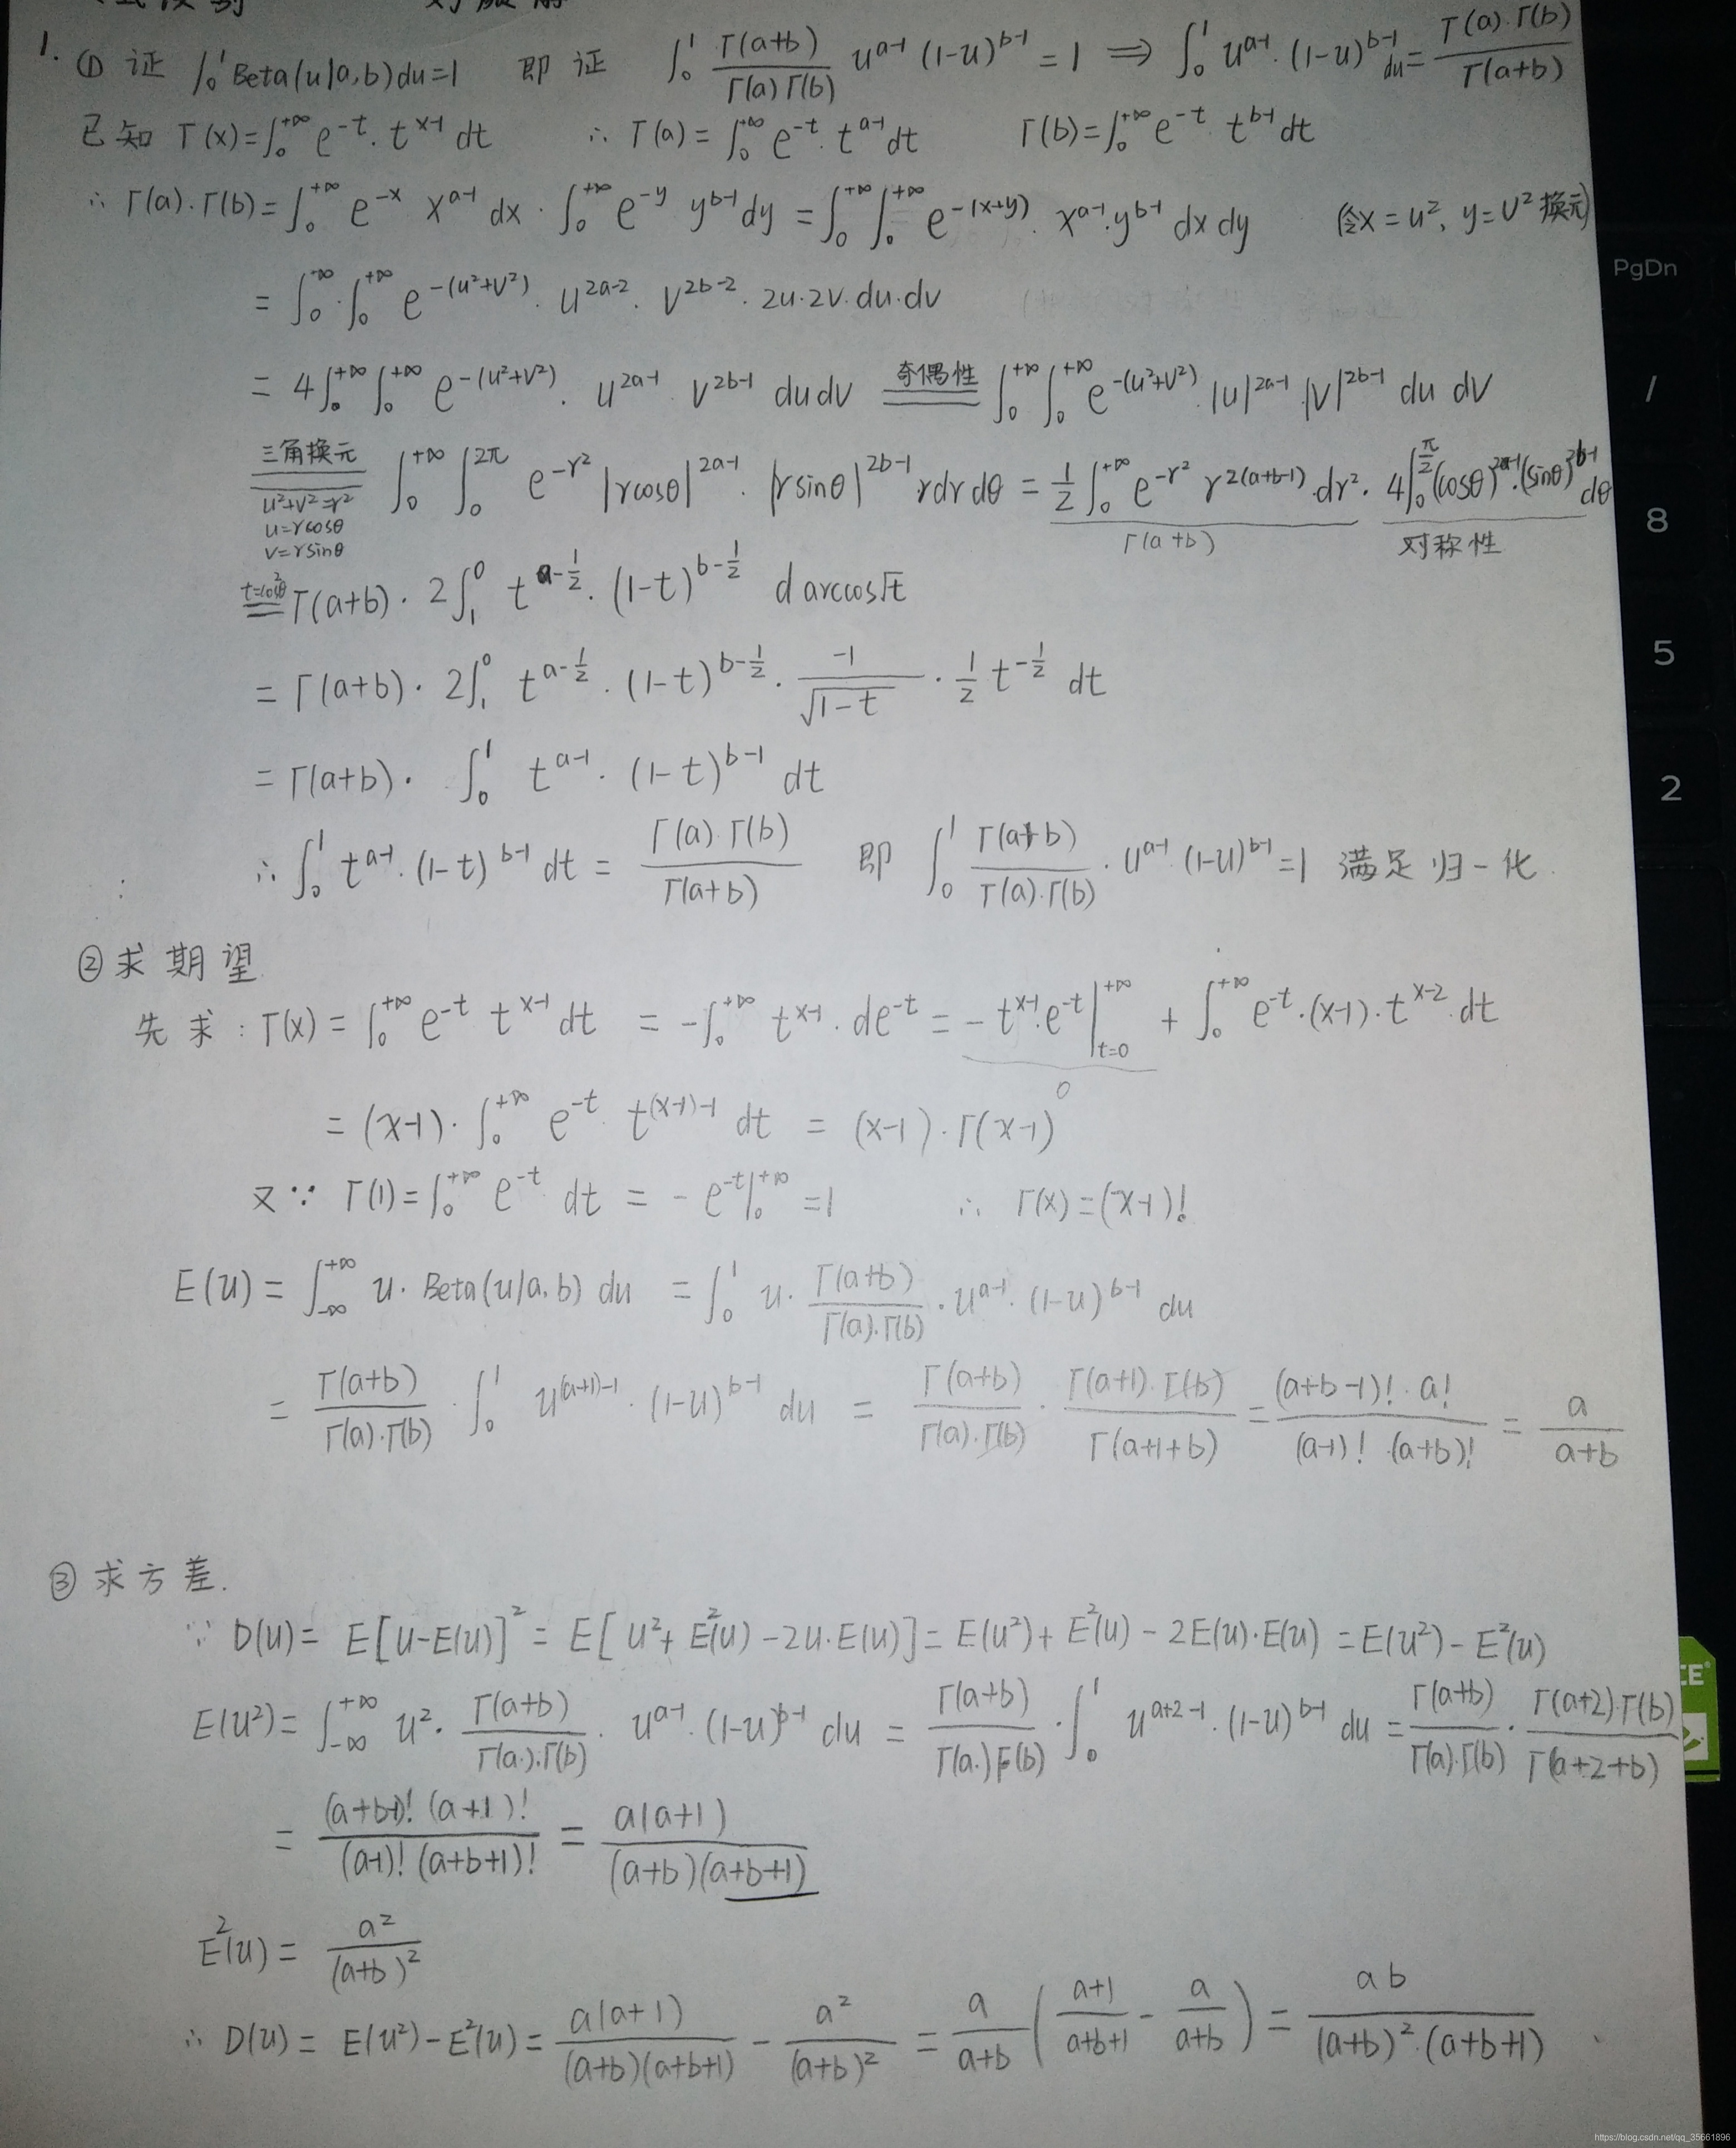 1. ① 证 ∫₀¹ Beta(u|a,b)du=1 即证 ∫₀¹ \frac{Γ(a+b)}{Γ(a)Γ(b)} u^{a-1} (1-u)^{b-1} = 1 ⇒ ∫₀¹ u^{a-1}·(1-u)^{b-1} du = \frac{Γ(a)·Γ(b)}{Γ(a+b)}
已知 Γ(x)=∫₀^{+∞} e^{-t}·t^{x-1} dt ∴ Γ(a)=∫₀^{+∞} e^{-t}·t^{a-1} dt Γ(b)=∫₀^{+∞} e^{-t} t^{b-1} dt
∴ Γ(a)·Γ(b)=∫₀^{+∞} e^{-x} x^{a-1} dx · ∫₀^{+∞} e^{-y} y^{b-1} dy = ∫₀^{+∞}∫₀^{+∞} e^{-(x+y)}·x^{a-1}·y^{b-1} dx dy (令x=u², y=v² 换元)
= ∫₀^{+∞}·∫₀^{+∞} e^{-(u²+v²)}·u^{2a-2}·v^{2b-2}·2u·2v·du·dv
= 4∫₀^{+∞}∫₀^{+∞} e^{-(u²+v²)}·u^{2a-1} v^{2b-1} du dv 奇偶性 = ∫₀^{+∞}∫₀^{+∞} e^{-(u²+v²)}·|u|^{2a-1}·|v|^{2b-1} du dv
三角换元 = ∫₀^{+∞}∫₀^{2π} e^{-r²} |rcosθ|^{2a-1}·|rsinθ|^{2b-1} r dr dθ = \frac{1}{2}∫₀^{+∞} e^{-r²} r^{2(a+b-1)}·dr²·4∫₀^{\frac{π}{2}} (cosθ)^{2a-1}·(sinθ)^{2b-1} dθ
u²+v²=r²
u=rcosθ
v=rsinθ
Γ(a+b) 对称性
t=cos²θ = Γ(a+b)·2∫₁⁰ t^{a-\frac{1}{2}}·(1-t)^{b-\frac{1}{2}} d arccos√t
= Γ(a+b)·2∫₁⁰ t^{a-\frac{1}{2}}·(1-t)^{b-\frac{1}{2}}·\frac{-1}{\sqrt{1-t}}·\frac{1}{2} t^{-\frac{1}{2}} dt
= Γ(a+b)·∫₀¹ t^{a-1}·(1-t)^{b-1} dt
∴ ∫₀¹ t^{a-1}·(1-t)^{b-1} dt = \frac{Γ(a)·Γ(b)}{Γ(a+b)} 即 ∫₀¹ \frac{Γ(a+b)}{Γ(a)·Γ(b)}·u^{a-1}·(1-u)^{b-1}=1 满足归一化
② 求期望
先求: Γ(x)=∫₀^{+∞} e^{-t} t^{x-1} dt = -∫₀^{+∞} t^{x-1}·de^{-t} = -t^{x-1}·e^{-t}|_{t=0}^{+∞} + ∫₀^{+∞} e^{-t}·(x-1)·t^{x-2} dt
0
= (x-1)·∫₀^{+∞} e^{-t} t^{(x-1)-1} dt = (x-1)·Γ(x-1)
又∵ Γ(1)=∫₀^{+∞} e^{-t} dt = -e^{-t}|₀^{+∞} =1 ∴ Γ(x)=(x-1)!
E(u)=∫_{-∞}^{+∞} u·Beta(u|a,b) du = ∫₀¹ u·\frac{Γ(a+b)}{Γ(a)·Γ(b)}·u^{a-1}·(1-u)^{b-1} du
= \frac{Γ(a+b)}{Γ(a)·Γ(b)}·∫₀¹ u^{(a+1)-1}·(1-u)^{b-1} du = \frac{Γ(a+b)}{Γ(a)·Γ(b)}·\frac{Γ(a+1)·Γ(b)}{Γ(a+1+b)} = \frac{(a+b-1)!·a!}{(a-1)!·(a+b)!} = \frac{a}{a+b}
③ 求方差.
∵ D(u)= E[u-E(u)]² = E[u²+E²(u)-2u·E(u)] = E(u²)+E²(u)-2E(u)·E(u) = E(u²)-E²(u)
E(u²)=∫_{-∞}^{+∞} u²·\frac{Γ(a+b)}{Γ(a)·Γ(b)}·u^{a-1}·(1-u)^{b-1} du = \frac{Γ(a+b)}{Γ(a)·Γ(b)}·∫₀¹ u^{a+2-1}·(1-u)^{b-1} du = \frac{Γ(a+b)}{Γ(a)·Γ(b)}·\frac{Γ(a+2)·Γ(b)}{Γ(a+2+b)}
= \frac{(a+b-1)!(a+1)!}{(a-1)!(a+b+1)!} = \frac{a(a+1)}{(a+b)(a+b+1)}
E²(u)= \frac{a²}{(a+b)²}
∴ D(u)= E(u²)-E²(u)= \frac{a(a+1)}{(a+b)(a+b+1)} - \frac{a²}{(a+b)²} = \frac{a}{a+b}(\frac{a+1}{a+b+1} - \frac{a}{a+b}) = \frac{ab}{(a+b)²·(a+b+1)}
PgDn
/
8
5
2
https://blog.csdn.net/qq_35661896